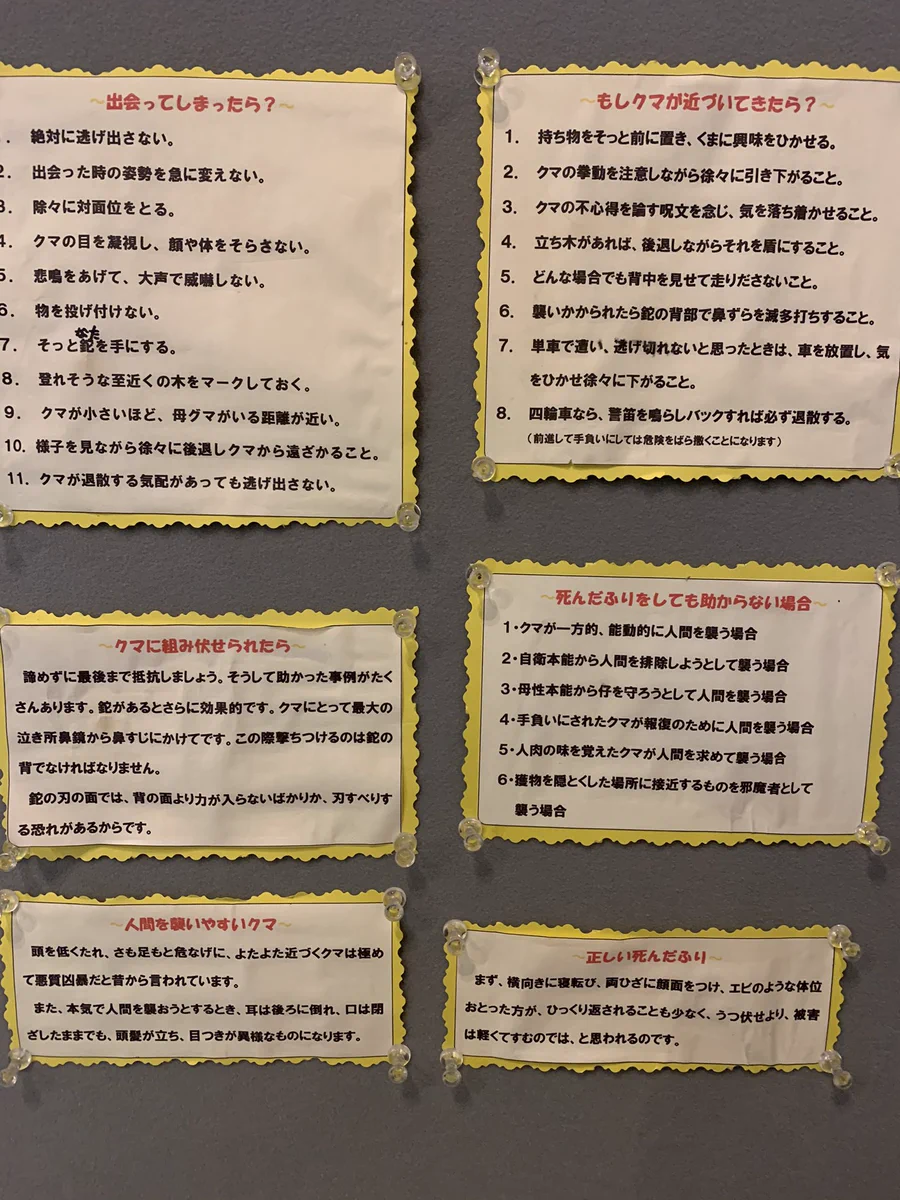 ～出会ってしまったら？～
. 絶対に逃げ出さない。
2. 出会った時の姿勢を急に変えない。
3. 除々に対面位をとる。
4. クマの目を凝視し、顔や体をそらさない。
5. 悲鳴をあげて、大声で威嚇しない。
6. 物を投げ付けない。
なた
7. そっと鉈を手にする。
8. 登れそうな至近くの木をマークしておく。
9. クマが小さいほど、母グマがいる距離が近い。
10. 様子を見ながら徐々に後退しクマから遠ざかること。
11. クマが退散する気配があっても逃げ出さない。
～もしクマが近づいてきたら？～
1. 持ち物をそっと前に置き、くまに興味をひかせる。
2. クマの拳動を注意しながら徐々に引き下がること。
3. クマの不心得を諭す呪文を念じ、気を落ち着かせること。
4. 立ち木があれば、後退しながらそれを盾にすること。
5. どんな場合でも背中を見せて走りださないこと。
6. 襲いかかられたら鉈の背部で鼻ずらを滅多打ちすること。
7. 単車で遭い、逃げ切れないと思ったときは、車を放置し、気
をひかせ徐々に下がること。
8. 四輪車なら、警笛を鳴らしバックすれば必ず退散する。
（前進して手負いにしては危険をばら撒くことになります）
～クマに組み伏せられたら～
諦めずに最後まで抵抗しましょう。そうして助かった事例がたく
さんあります。鉈があるとさらに効果的です。クマにとって最大の
泣き所鼻鏡から鼻すじにかけてです。この際撃ちつけるのは鉈の
背でなければなりません。
鉈の刃の面では、背の面より力が入らないばかりか、刃すべりす
る恐れがあるからです。
～死んだふりをしても助からない場合～
1・クマが一方的、能動的に人間を襲う場合
2・自衛本能から人間を排除しようとして襲う場合
3・母性本能から仔を守ろうとして人間を襲う場合
4・手負いにされたクマが報復のために人間を襲う場合
5・人肉の味を覚えたクマが人間を求めて襲う場合
6・獲物を隠とくした場所に接近するものを邪魔者として
襲う場合
～人間を襲いやすいクマ～
頭を低くたれ、さも足もと危なげに、よたよた近づくクマは極め
て悪質凶暴だと昔から言われています。
また、本気で人間を襲おうとするとき、耳は後ろに倒れ、口は閉
ざしたままでも、頭髪が立ち、目つきが異様なものになります。
～正しい死んだふり～
まず、横向きに寝転び、両ひざに顔面をつけ、エビのような体位
おとった方が、ひっくり返されることも少なく、うつ伏せより、被害
は軽くてすむのでは、と思われるのです。